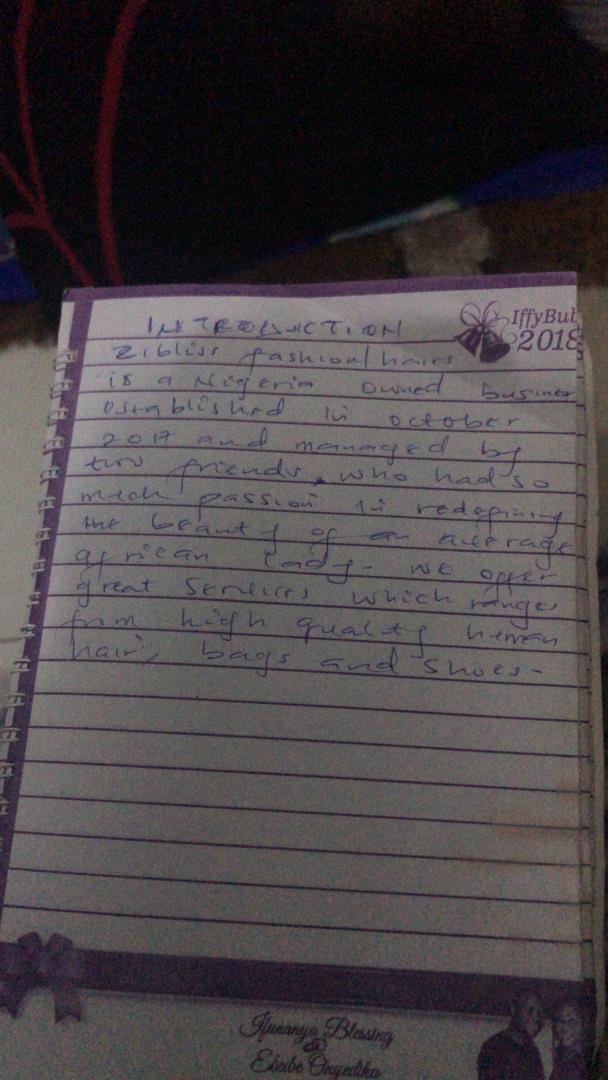 INTRODUCTION
IffyBub
2018
Zibliss fashion/hairs
is a Nigeria owned business
established in october
2017 and managed by
two friends, who had so
much passion in redefining
the beauty of an average
african lady. we offer
great services which ranges
from high quality human
hair, bags and shoes-
Ifunanya Blessing
&
Ebube Onyedika